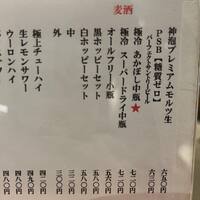 麦酒
神泡プレミアムモルツ生 六五〇円
PSB【糖質ゼロ】 六二〇円
パーフェクトサントリービール
極冷 あかぼし中瓶★ 七二〇円
極冷 スーパードライ中瓶 七二〇円
オールフリー小瓶 五〇〇円
黒ホッピーセット 五六〇円
白ホッピーセット 五六〇円
中 三〇〇円
外 三二〇円
極上チューハイ 四二〇円
生レモンサワー 四八〇円
ウーロンハイ 四八〇円